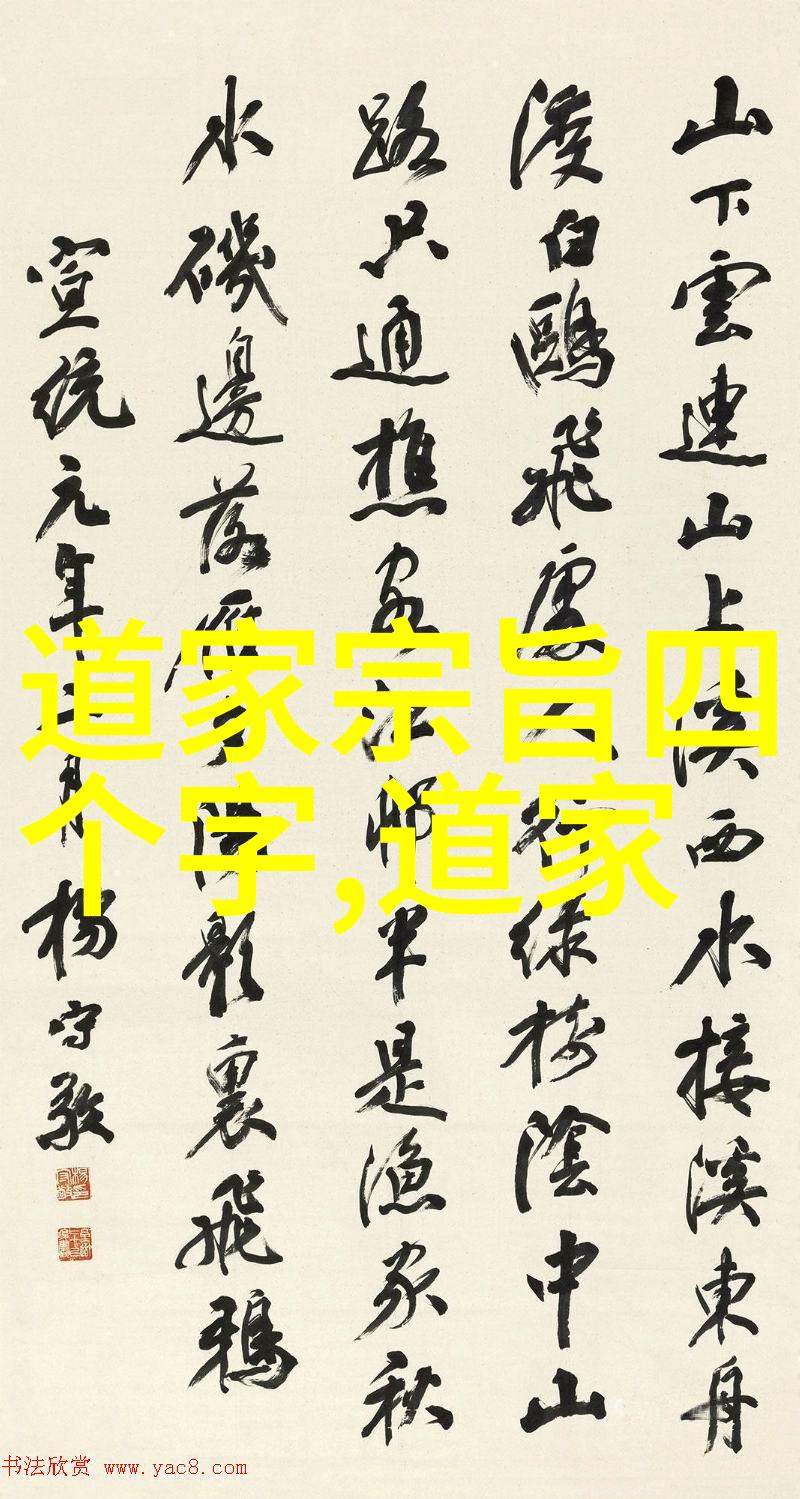 山下雲連山上溪西水接溪東舟
渡白鷗飛處人行綠樹陰中山
路只通樵客江邨半是漁家秋
水磯邊落雁夕陽影裏飛鴉
宣統元年二月楊守敬
道家宗旨四
个字,道家
书法欣赏 www.yac8.com